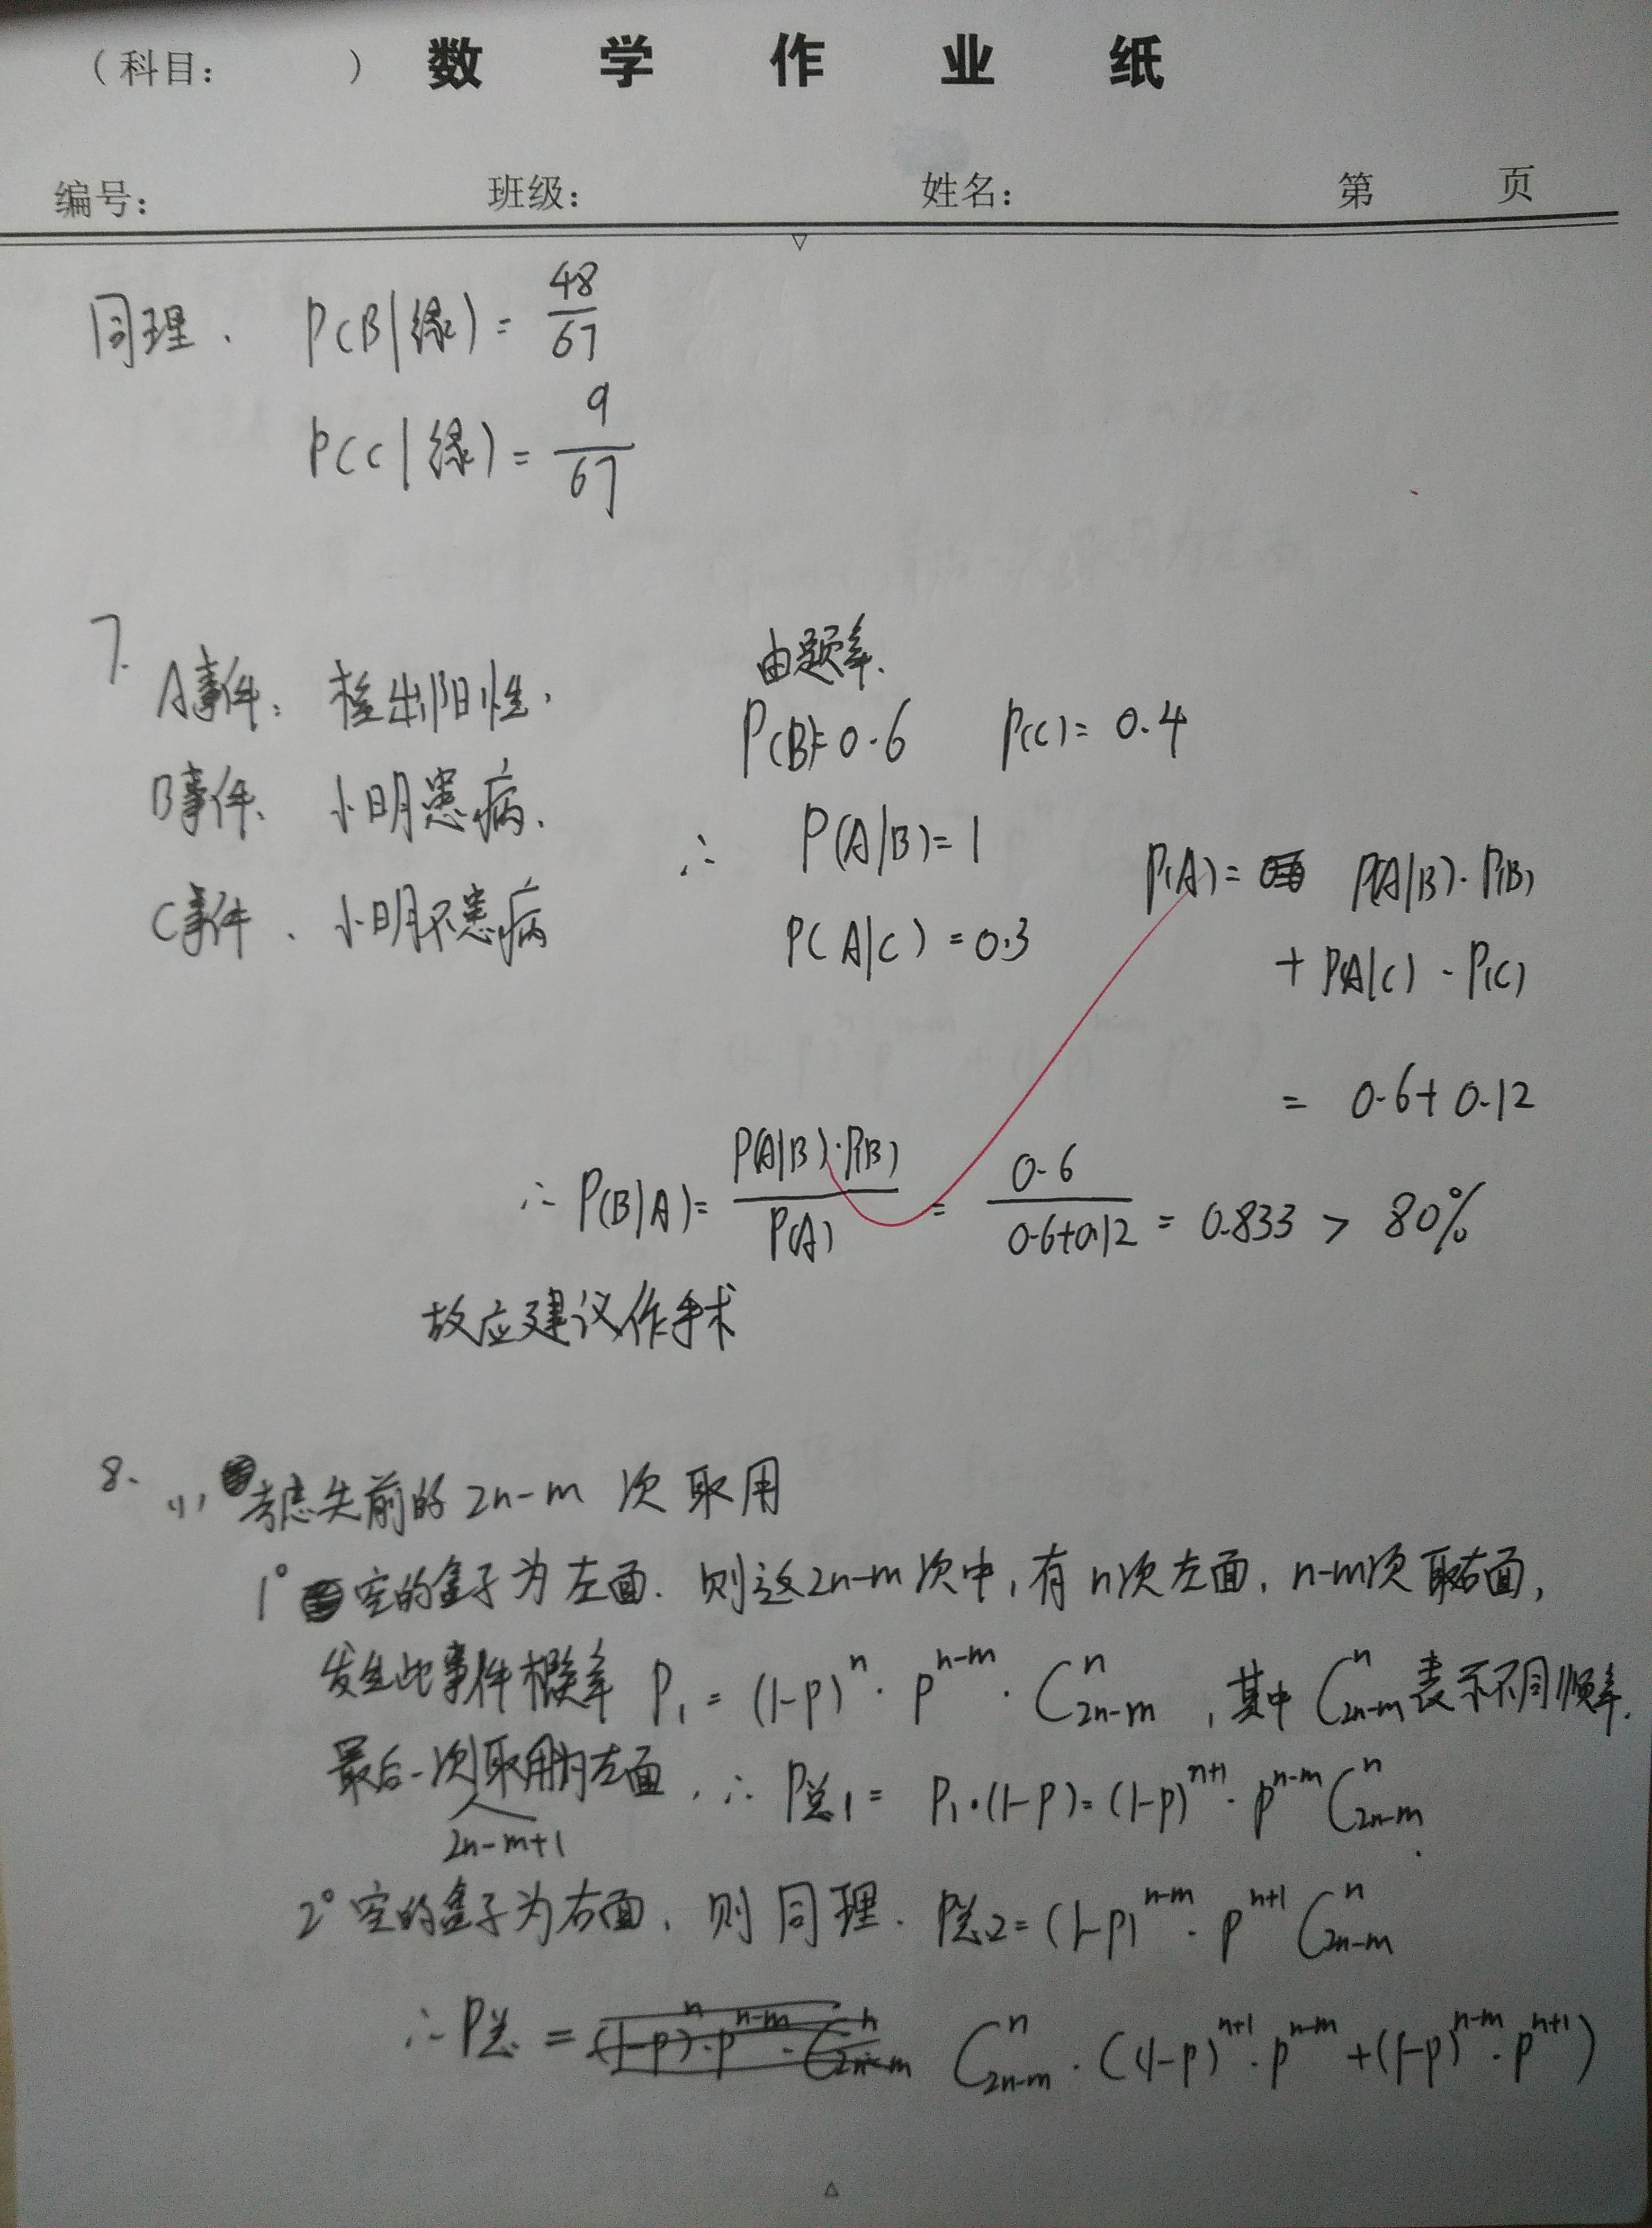 （科目：　　　）数 学 作 业 纸
编号：　班级：　姓名：　第　页
同理. P(B|绿) = 48/67
P(C|绿) = 9/67
7.
A事件: 检出阳性.
B事件. 小明患病.
C事件. 小明不患病
由题意.
P(B)=0.6 P(C)=0.4
∴ P(A|B)=1
P(A|C)=0.3
P(A)= P(A|B)·P(B)
+ P(A|C)·P(C)
= 0.6+0.12
∴ P(B|A)= P(A|B)·P(B)/P(A) = 0.6/(0.6+0.12) = 0.833 > 80%
故应建议作手术
8. (1) 考虑先前的 2n-m 次取用
1° 空的盒子为左面. 则这2n-m次中, 有n次左面, n-m次取右面,
发生此事件概率 P₁ = (1-p)^n · p^(n-m) · C_{2n-m}^n , 其中 C_{2n-m}^n 表示不同顺序.
最后一次取用为左面, ∴ P总1 = P₁·(1-p) = (1-p)^(n+1) · p^(n-m) C_{2n-m}^n
2n-m+1
2° 空的盒子为右面, 则同理. P总2 = (1-p)^(n-m) · p^(n+1) C_{2n-m}^n
∴ P总 = (1-p)^n · p^(n-m) · C_{2n-m}^n C_{2n-m}^n · ((1-p)^(n+1) · p^(n-m) + (1-p)^(n-m) · p^(n+1))